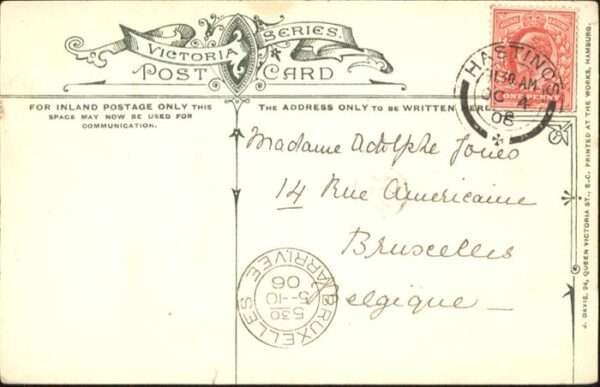 VICTORIA SERIES.
POST CARD
FOR INLAND POSTAGE ONLY THIS
SPACE MAY NOW BE USED FOR
COMMUNICATION.
THE ADDRESS ONLY TO BE WRITTEN HERE
HASTINGS
11 30 AM
OC 4
06
ONE PENNY
Madame Adolphe Jones
14 Rue Americaine
Bruxelles
Belgique
BRUXELLES
530
5-10
06
ARRIVEE
J. DAVIS, 24, QUEEN VICTORIA ST., E.C. PRINTED AT THE WORKS, HAMBURG.